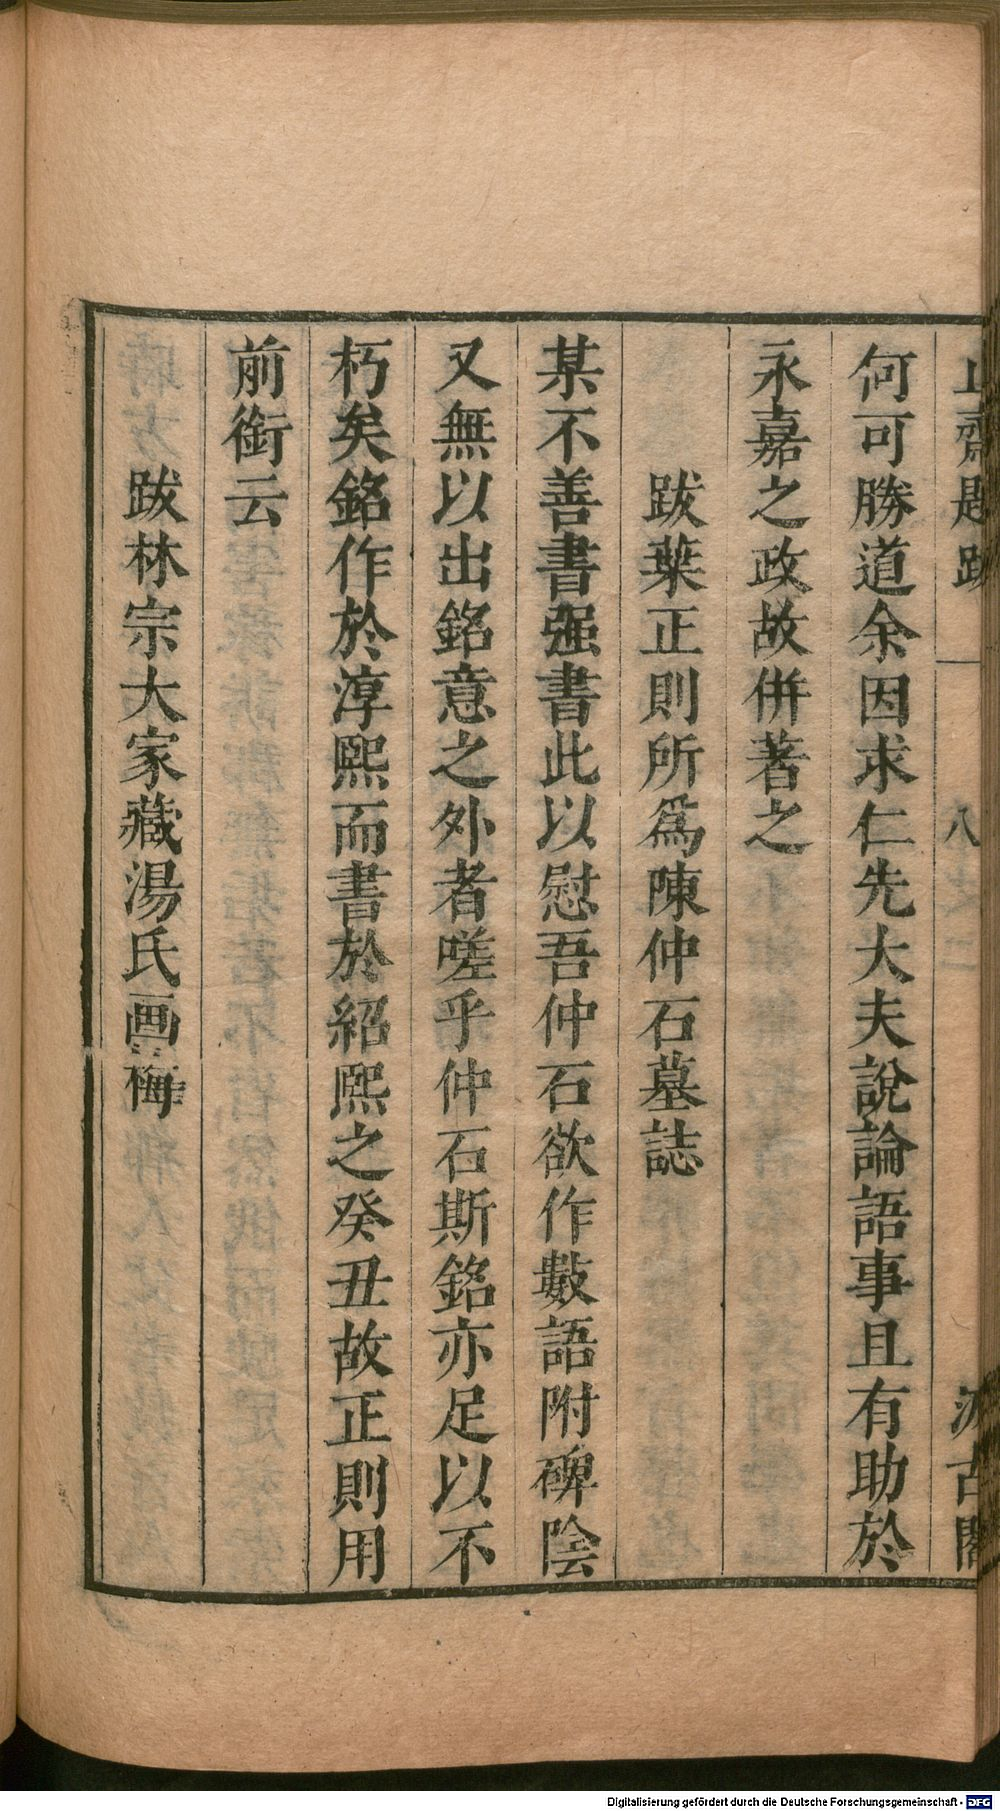 止齋題跋 一 八 汲古閣
何可勝道余因求仁先大夫說論語事且有助於
永嘉之政故併著之
跋葉正則所爲陳仲石墓誌
某不善書强書此以慰吾仲石欲作數語附碑陰
又無以出銘意之外者嗟乎仲石斯銘亦足以不
朽矣銘作於淳熙而書於紹熙之癸丑故正則用
前銜云
跋林宗大家藏湯氏画梅
Digitalisierung gefördert durch die Deutsche Forschungsgemeinschaft - DFG